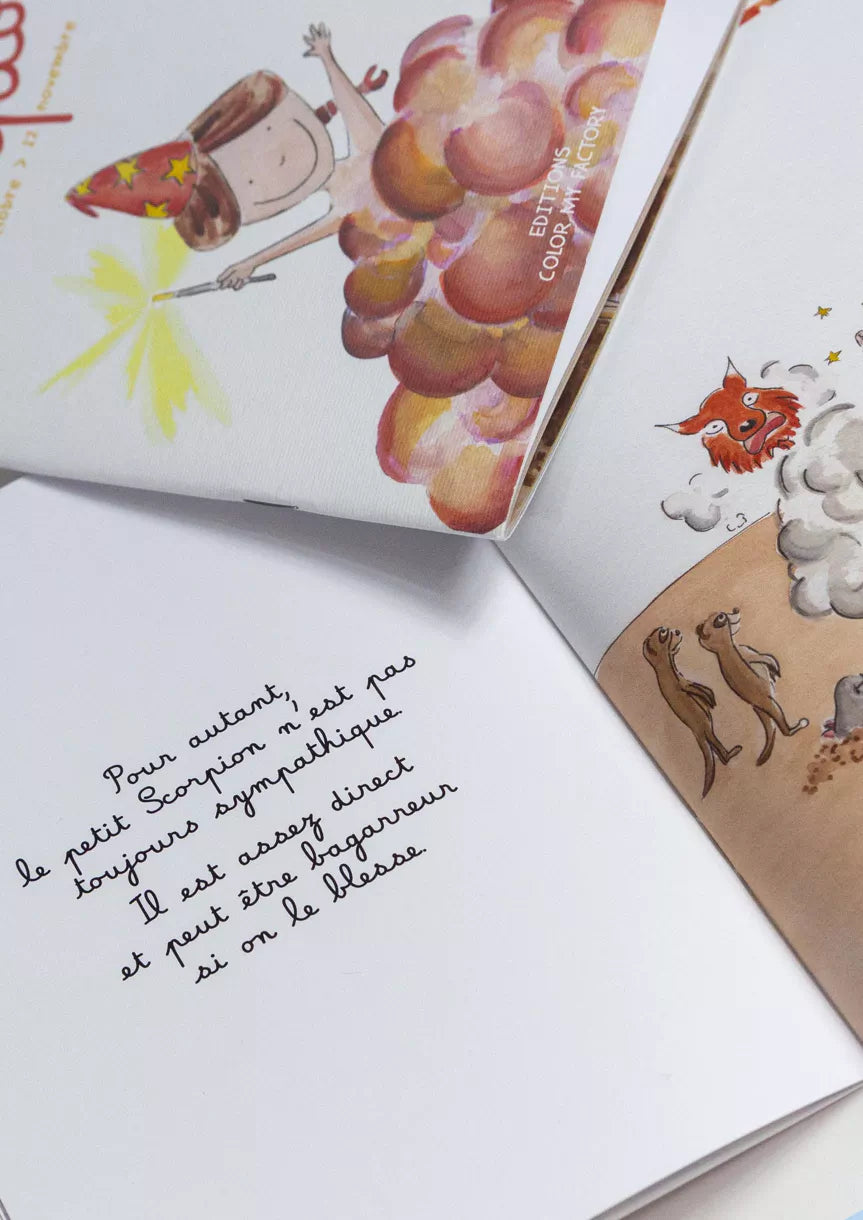 12 novembre
EDITIONS
COLOR MY FACTORY
Pour autant,
le petit Scorpion n'est pas
toujours sympathique.
Il est assez direct
et peut être bagarreur
si on le blesse.